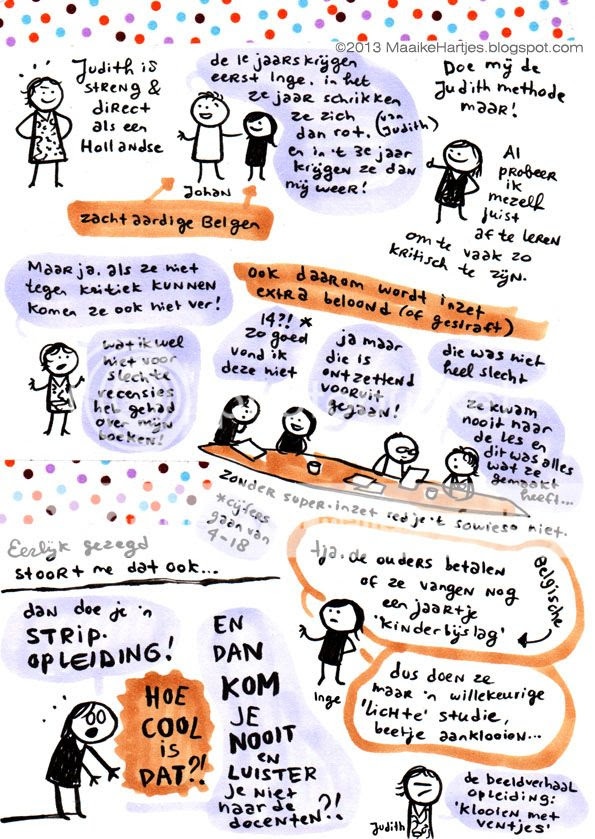 ©2013 MaaikeHartjes.blogspot.com
Judith is
streng &
direct
als een
Hollandse
de 1e jaars krijgen
eerst Inge. in het
2e jaar schrikken
ze zich
dan rot. (van Judith)
en in 't 3e jaar
krijgen ze dan
mij weer!
Johan
zachtaardige Belgen
Doe mij de
Judith methode
maar!
Al
probeer
ik
mezelf
juist
af te leren
om te vaak zo
kritisch te zijn.
Maar ja, als ze niet
tegen kritiek kunnen
komen ze ook niet ver!
wat ik wel
niet voor
slechte
recensies
heb gehad
over mijn
boeken!
ook daarom wordt inzet
extra beloond (of gestraft)
14?! *
zo goed
vond ik
deze niet
ja maar
die is
ontzettend
vooruit
gegaan!
die was niet
heel slecht
ze kwam
nooit naar
de les en
dit was alles
wat ze
gemaakt
heeft...
zonder super-inzet red je 't sowieso niet.
*cijfers
gaan van
4-18
Eerlijk gezegd
stoort me dat ook...
dan doe je 'n
STRIP-
OPLEIDING!
HOE
COOL
is
DAT?!
EN
DAN
KOM
JE
NOOIT
en
LUISTER
je niet
naar de
docenten?!
tja, de ouders betalen
of ze vangen nog
een jaartje
'kinderbijslag'
Belgische
Inge
dus doen ze
maar 'n willekeurige
'lichte' studie,
beetje aanklooien...
Judith
de beeldverhaal
opleiding:
'klooien met
ventjes'